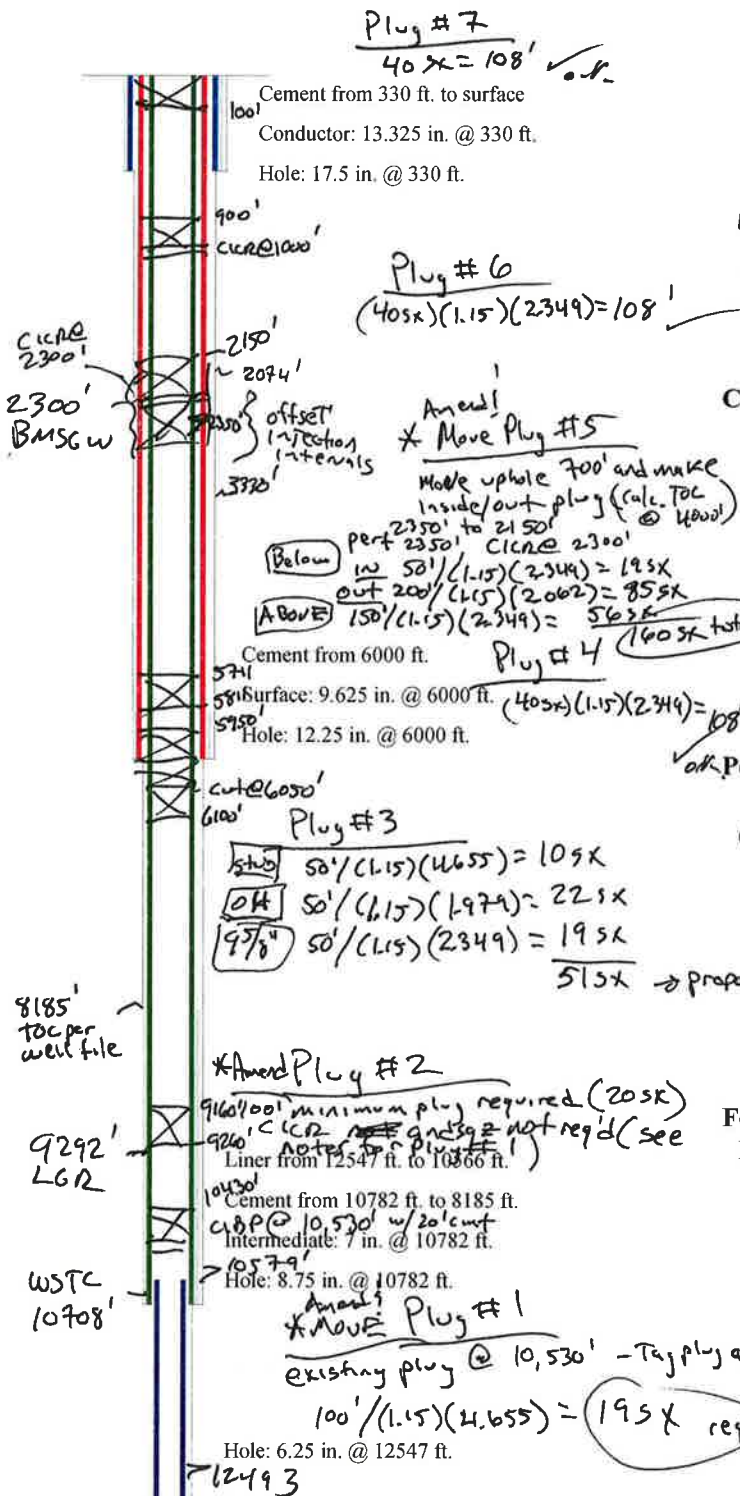 Plug # 7
40 sx = 108' ✓ O.K.
100'
Cement from 330 ft. to surface
Conductor: 13.325 in. @ 330 ft.
Hole: 17.5 in. @ 330 ft.
900'
CICR@1000'
Plug # 6
(40sx)(1.15)(2.349)=108'
CICR@
2300'
2150'
2074'
2300'
BMSGW
2350'
offset
injection
intervals
3330'
Amend!
* Move Plug #5
Move uphole 700' and make
inside/out plug (calc. TOC
@ 4000')
perf 2350' to 2150'
2350' CICR@ 2300'
Below in 50'/(1.15)(2.349) = 19sx
out 200'/(1.15)(2.062) = 85sx
Above 150'/(1.15)(2.349) = 56sx
160 sx
Cement from 6000 ft.
Plug # 4
5711
5811
Surface: 9.625 in. @ 6000 ft.
(40sx)(1.15)(2.349)=108'
5950'
Hole: 12.25 in. @ 6000 ft.
O.K.
cut@6050'
6100'
Plug #3
stub 50'/(1.15)(4.655) = 10sx
OH 50'/(1.15)(1.979) = 22sx
9 5/8" 50'/(1.15)(2.349) = 19sx
51sx →
8185'
TOC per
well file
*Amend Plug #2
9160' 100' minimum plug required (20sk)
9260' CICR and sqz not req'd (see
notes for Plug # 1)
9292'
LGR
Liner from 12547 ft. to 10366 ft.
10430'
Cement from 10782 ft. to 8185 ft.
CIBP@ 10,530' w/20' cmt
Intermediate: 7 in. @ 10782 ft.
10579'
Hole: 8.75 in. @ 10782 ft.
WSTC
10708'
Amend!
*Move Plug #1
existing plug @ 10,530' - Tag plug
100'/(1.15)(4.655) = 19sx
Hole: 6.25 in. @ 12547 ft.
12493